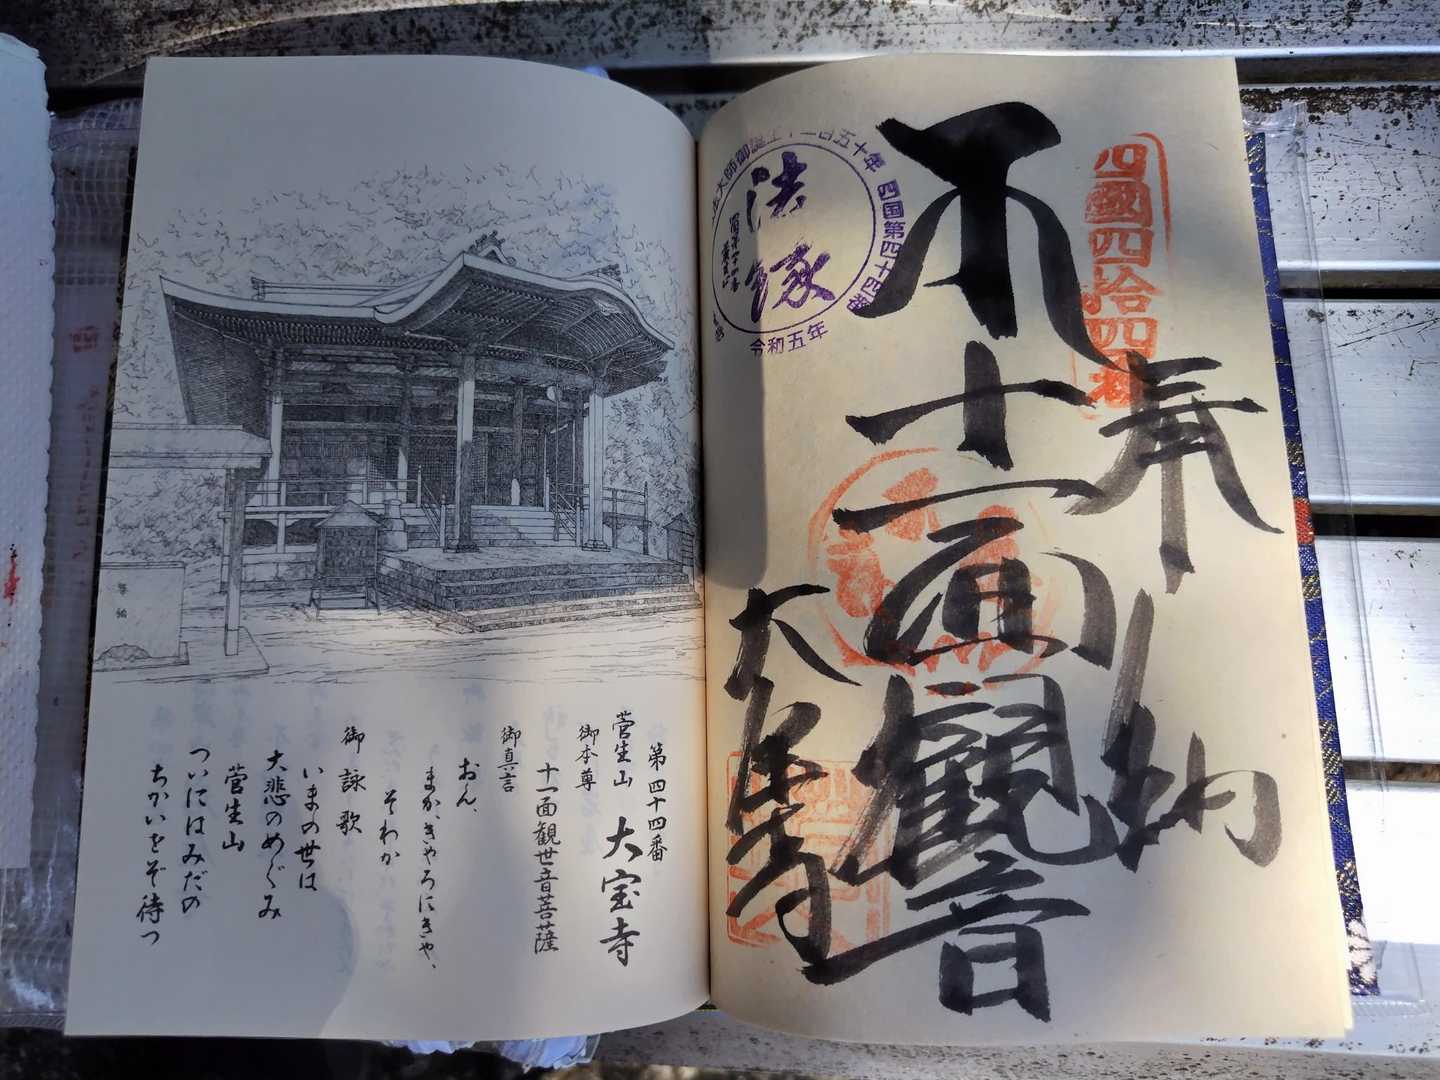 四國四拾四番
奉納
十一面観音
大宝寺
大師御誕生千二百五十年
四国第四十四番
令和五年
法縁
第四十四番
菅生山 大宝寺
御本尊
十一面観世音菩薩
御真言
おん、
まか、きゃろにきゃ、
そわか
御詠歌
いまの世は
大悲のめぐみ
菅生山
ついにはみだの
ちかいをぞ待つ
奉納